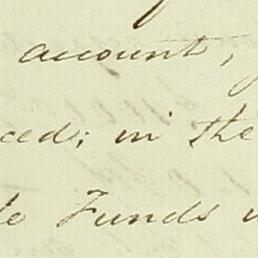 account,
ced; in the
Funds